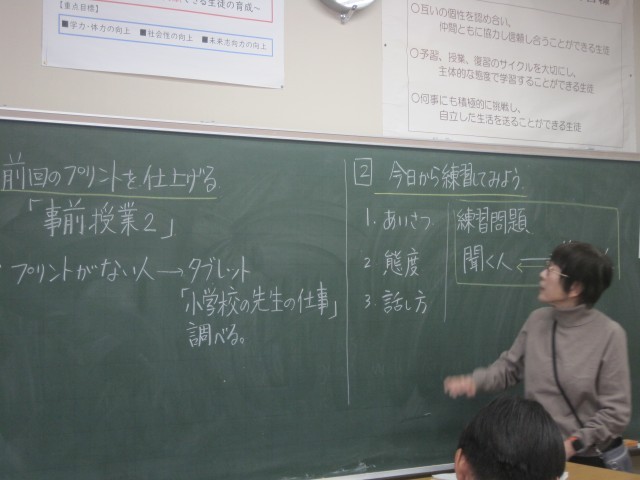 できる生徒の育成～
【重点目標】
■学力・体力の向上 ■社会性の向上 ■未来志向力の向上
○互いの個性を認め合い、
仲間ともに協力し信頼し合うことができる生徒
○予習、授業、復習のサイクルを大切にし、
主体的な態度で学習することができる生徒
○何事にも積極的に挑戦し、
自立した生活を送ることができる生徒
前回のプリントを仕上げる
「事前授業2」
プリントがない人→タブレット
「小学校の先生の仕事」
調べる。
2 今日から練習してみよう
1. あいさつ
2 態度
3. 話し方
練習問題
聞く人